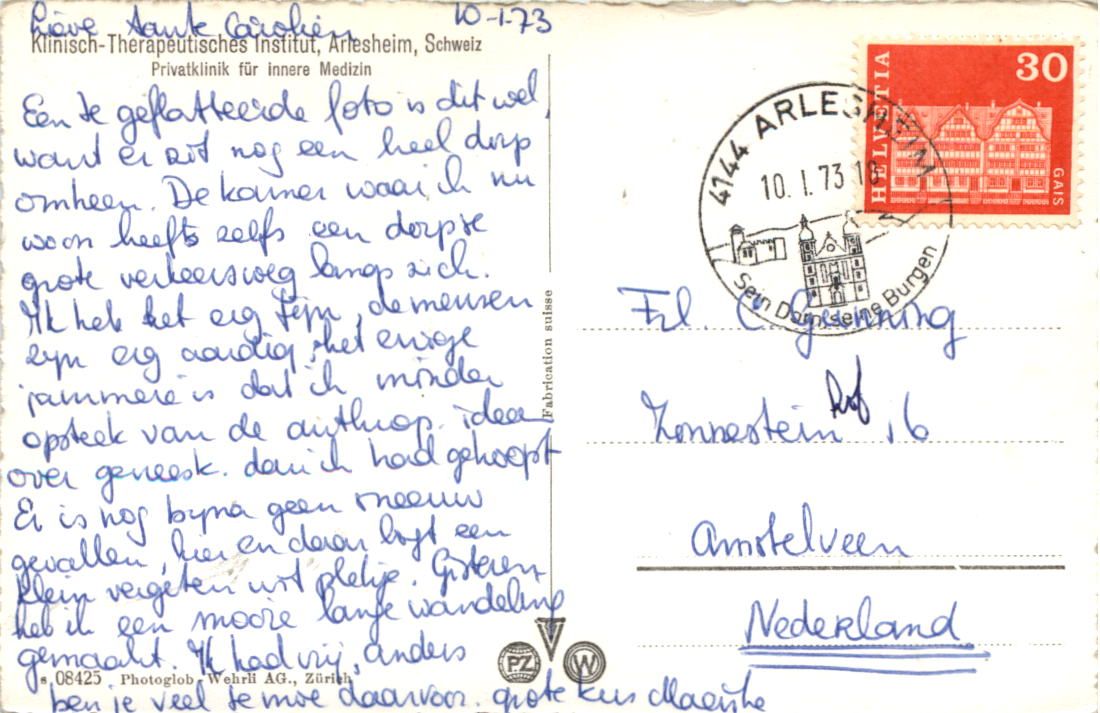 10-1-73
Lieve tante Carolien
Klinisch-Therapeutisches Institut, Arlesheim, Schweiz
Privatklinik für innere Medizin
Een te geflatteerde foto is dit wel,
want er zit nog een heel dorp
omheen. De kamer waar ik nu
woon heeft zelfs een dorpse
grote verkeersweg langs zich.
Ik heb het erg fijn, de mensen
zijn erg aardig, het enige
jammere is dat ik minder
opsteek van de anthrop. ideeen
over geneesk. dan ik had gehoopt
Er is nog bijna geen sneeuw
gevallen, hier en daar ligt een
klein vergeten wit plekje. Gisteren
heb ik een mooie lange wandeling
gemaakt. Ik had vrij, anders
ben je veel te moe daarvoor. grote kus
s. 08425 Photoglob-Wehrli AG., Zürich
Fabrication suisse
PZ W
HELVETIA 30
GAIS
4144 ARLESHEIM
10.I.73.18
Sein Dom, seine Burgen
Frl. C.
Zonnesteinhof 16
Amstelveen
Nederland